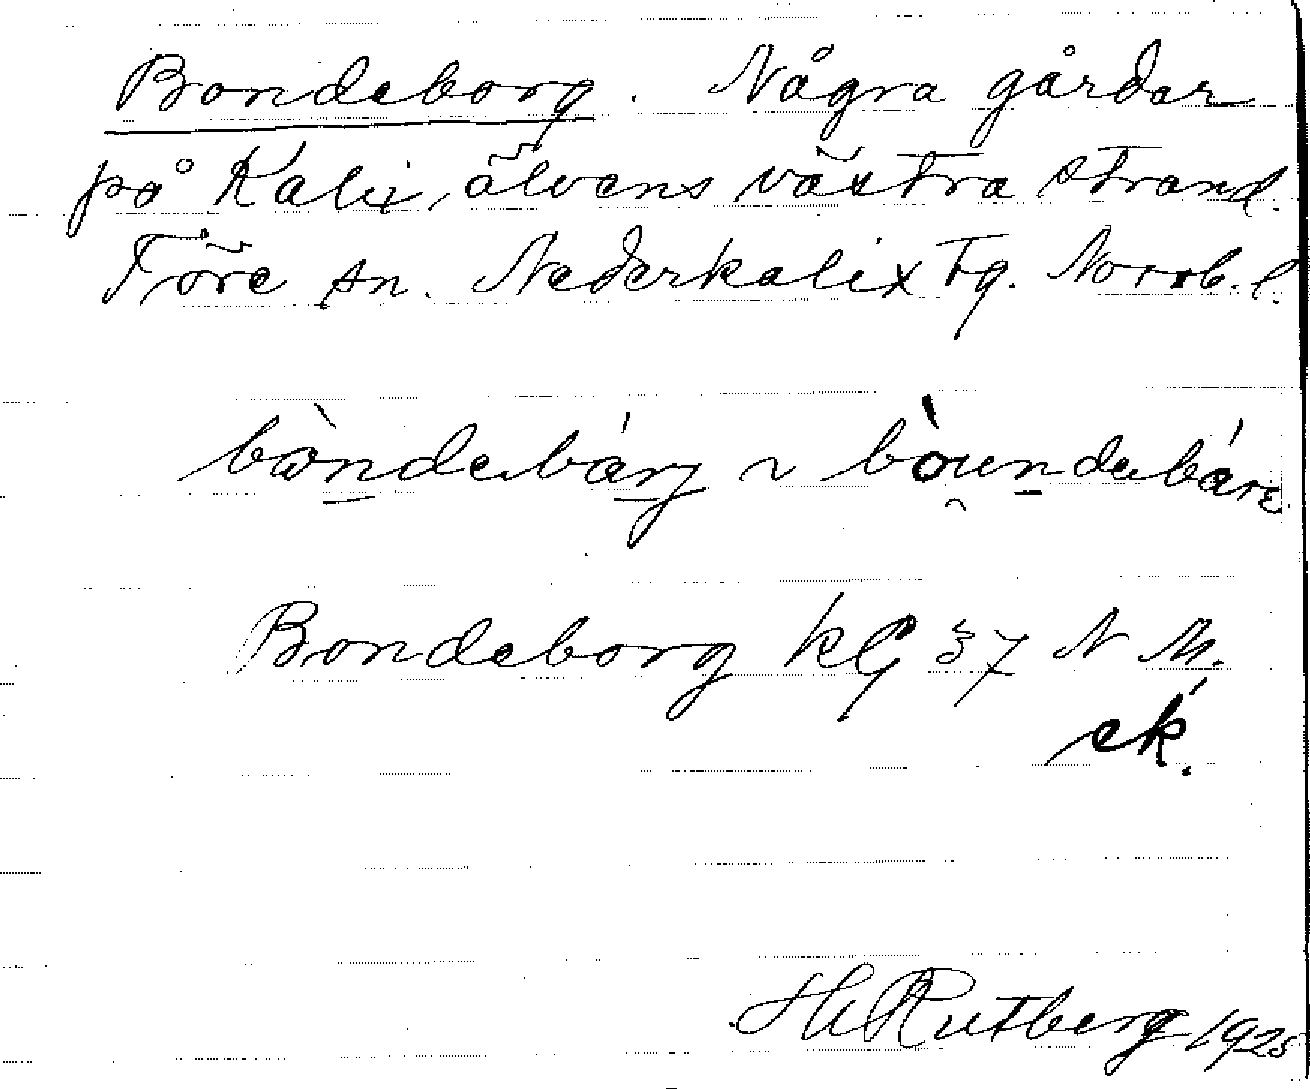 Bondeborg. Några gårdar
på Kalix älvens västra strand.
Töre sn. Nederkalix tg. Norrb. l.
bòndebárj ~ bòundebáre
Bondeborg kG 37 N M.
ek.
H Rutberg 1925